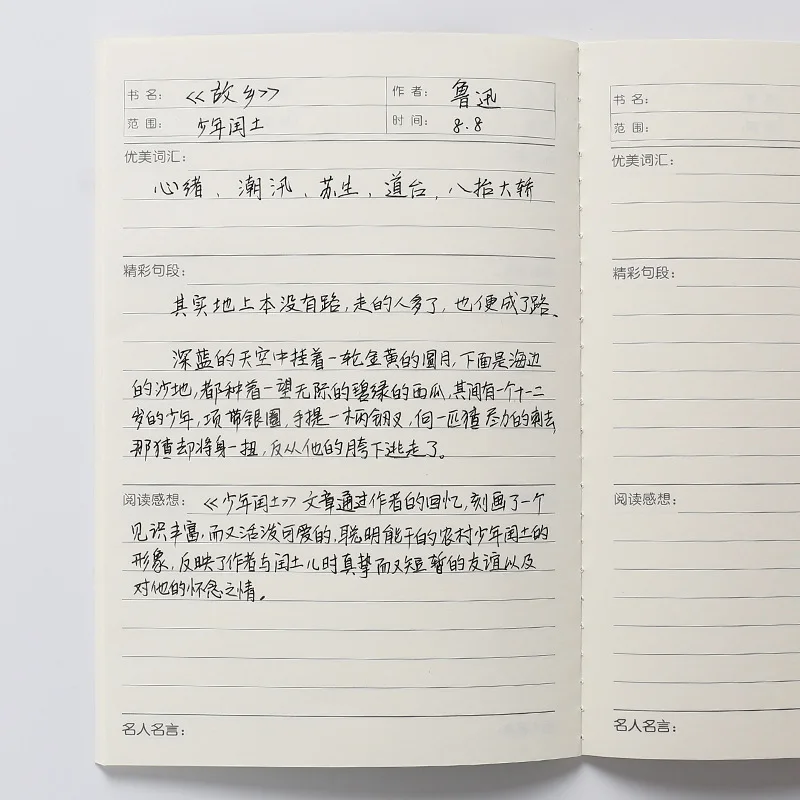 书 名： 《故乡》 作 者： 鲁迅
范 围： 少年闰土 时 间： 8.8
优美词汇：
心绪、潮汛、苏生、道台，八抬大轿
精彩句段：
其实地上本没有路，走的人多了，也便成了路。
深蓝的天空中挂着一轮金黄的圆月，下面是海边
的沙地，都种着一望无际的碧绿的西瓜，其间有一个十一二
岁的少年，项带银圈，手捏一柄钢叉，向一匹猹尽力的刺去，
那猹却将身一扭，反从他的胯下逃走了。
阅读感想： 《少年闰土》文章通过作者的回忆，刻画了一个
见识丰富，而又活泼可爱的，聪明能干的农村少年闰土的
形象，反映了作者与闰土儿时真挚而又短暂的友谊以及
对他的怀念之情。
名人名言：
书 名：
范 围：
优美词汇：
精彩句段：
阅读感想：
名人名言：